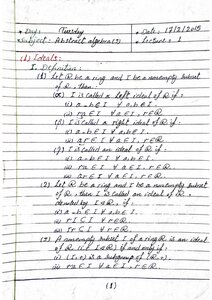 Day: Tuesday Date: 17/2/2015
Subject: Abstract algebra(2) Lecture: 1
(1) Ideals:
1. Definition:
(1) Let R be a ring and I be a nonempty subset
of R, then:
(α) I is called a left ideal of R if:
(i) a-b∈I ∀ a,b∈I
(ii) ra∈I ∀ a∈I, r∈R
(β) I is called a right ideal of R if:
(i) a-b∈I ∀ a,b∈I
(ii) ar∈I ∀ a∈I, r∈R
(γ) I is called an ideal of R if:
(i) a-b∈I ∀ a,b∈I
(ii) ra∈I ∀ a∈I, r∈R
(iii) ar∈I ∀ a∈I, r∈R
(2) Let R be a ring and I be a nonempty subset
of R, then I is called an ideal of R,
denoted by I⊲R, if:
(i) a-b∈I ∀ a,b∈I
(ii) rI⊆I ∀ r∈R
(iii) Ir⊆I ∀ r∈R
(3) A nonempty subset I of a ring R is an ideal
of R, if
(i) (I,+) is a subgroup of (R,+).
(ii) ra∈I ∀ a∈I, r∈R.
(1)